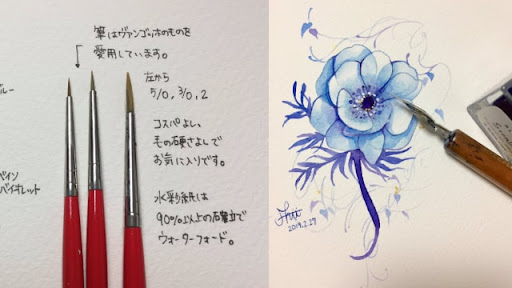 筆はヴァンゴッホのものを
愛用しています。
左から
5/0, 3/0, 2
コスパよし、
毛の硬さよしで
お気に入りです。
水彩紙は
90%以上の確立で
ウォーターフォード。
ルー
ペイン
バイオレット
2019.2.27